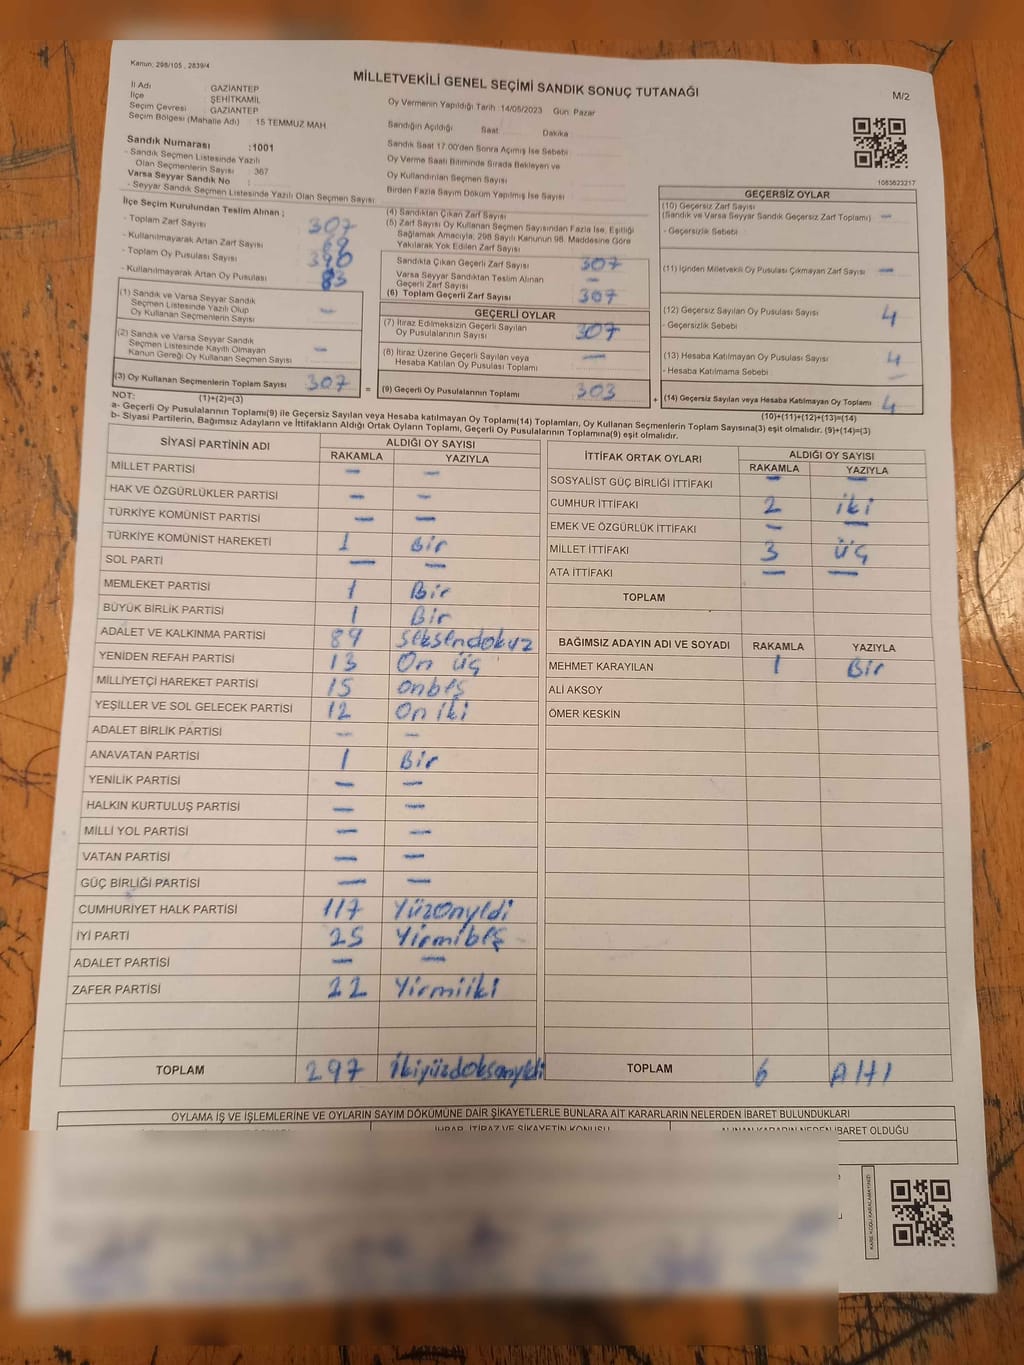 Kanun: 298/105 , 2839/4
MİLLETVEKİLİ GENEL SEÇİMİ SANDIK SONUÇ TUTANAĞI
M/2
İl Adı : GAZİANTEP
İlçe : ŞEHİTKAMİL
Seçim Çevresi : GAZİANTEP
Seçim Bölgesi (Mahalle Adı) : 15 TEMMUZ MAH.
Sandık Numarası :1001
- Sandık Seçmen Listesinde Yazılı
Olan Seçmenlerin Sayısı : 367
Varsa Seyyar Sandık No :
- Seyyar Sandık Seçmen Listesinde Yazılı Olan Seçmen Sayısı
Oy Vermenin Yapıldığı Tarih :14/05/2023 Gün: Pazar
Sandığın Açıldığı Saat Dakika
Sandık Saat 17.00'den Sonra Açılmış İse Sebebi
Oy Verme Saati Bitiminde Sırada Bekleyen ve
Oy Kullandırılan Seçmen Sayısı
Birden Fazla Sayım Döküm Yapılmış İse Sayısı
1083623217
İlçe Seçim Kurulundan Teslim Alınan ;
- Toplam Zarf Sayısı 307
- Kullanılmayarak Artan Zarf Sayısı
- Toplam Oy Pusulası Sayısı
- Kullanılmayarak Artan Oy Pusulası 83
(1) Sandık ve Varsa Seyyar Sandık
Seçmen Listesinde Yazılı Olup
Oy Kullanan Seçmenlerin Sayısı —
(2) Sandık ve Varsa Seyyar Sandık
Seçmen Listesinde Kayıtlı Olmayan
Kanun Gereği Oy Kullanan Seçmen Sayısı —
(3) Oy Kullanan Seçmenlerin Toplam Sayısı 307 =
(4) Sandıktan Çıkan Zarf Sayısı
(5) Zarf Sayısı Oy Kullanan Seçmen Sayısından Fazla İse, Eşitliği
Sağlamak Amacıyla; 298 Sayılı Kanunun 98. Maddesine Göre
Yakılarak Yok Edilen Zarf Sayısı
Sandıkta Çıkan Geçerli Zarf Sayısı 307
Varsa Seyyar Sandıktan Teslim Alınan
Geçerli Zarf Sayısı —
(6) Toplam Geçerli Zarf Sayısı 307
GEÇERLİ OYLAR
(7) İtiraz Edilmeksizin Geçerli Sayılan
Oy Pusulalarının Sayısı 307
(8) İtiraz Üzerine Geçerli Sayılan veya
Hesaba Katılan Oy Pusulası Toplamı —
(9) Geçerli Oy Pusulalarının Toplamı 303 +
GEÇERSİZ OYLAR
(10) Geçersiz Zarf Sayısı
(Sandık ve Varsa Seyyar Sandık Geçersiz Zarf Toplamı) —
- Geçersizlik Sebebi
(11) İçinden Milletvekili Oy Pusulası Çıkmayan Zarf Sayısı —
(12) Geçersiz Sayılan Oy Pusulası Sayısı 4
- Geçersizlik Sebebi
(13) Hesaba Katılmayan Oy Pusulası Sayısı 4
- Hesaba Katılmama Sebebi
(14) Geçersiz Sayılan veya Hesaba Katılmayan Oy Toplamı 4
NOT: (1)+(2)=(3) (10)+(11)+(12)+(13)=(14)
a- Geçerli Oy Pusulalarının Toplamı(9) ile Geçersiz Sayılan veya Hesaba katılmayan Oy Toplamı(14) Toplamları, Oy Kullanan Seçmenlerin Toplam Sayısına(3) eşit olmalıdır. (9)+(14)=(3)
b- Siyasi Partilerin, Bağımsız Adayların ve İttifakların Aldığı Ortak Oyların Toplamı, Geçerli Oy Pusulalarının Toplamına(9) eşit olmalıdır.
SİYASİ PARTİNİN ADI ALDIĞI OY SAYISI
RAKAMLA YAZIYLA
MİLLET PARTİSİ — —
HAK VE ÖZGÜRLÜKLER PARTİSİ — —
TÜRKİYE KOMÜNİST PARTİSİ — —
TÜRKİYE KOMÜNİST HAREKETİ 1 Bir
SOL PARTİ — —
MEMLEKET PARTİSİ 1 Bir
BÜYÜK BİRLİK PARTİSİ 1 Bir
ADALET VE KALKINMA PARTİSİ 89 Seksendokuz
YENİDEN REFAH PARTİSİ 13 On üç
MİLLİYETÇİ HAREKET PARTİSİ 15 onbeş
YEŞİLLER VE SOL GELECEK PARTİSİ 12 On iki
ADALET BİRLİK PARTİSİ — —
ANAVATAN PARTİSİ 1 Bir
YENİLİK PARTİSİ — —
HALKIN KURTULUŞ PARTİSİ — —
MİLLİ YOL PARTİSİ — —
VATAN PARTİSİ — —
GÜÇ BİRLİĞİ PARTİSİ — —
CUMHURİYET HALK PARTİSİ 117 Yüzonyedi
İYİ PARTİ 25 Yirmibeş
ADALET PARTİSİ — —
ZAFER PARTİSİ 22 Yirmiiki
TOPLAM 297 ikiyüzdoksanyedi
İTTİFAK ORTAK OYLARI ALDIĞI OY SAYISI
RAKAMLA YAZIYLA
SOSYALİST GÜÇ BİRLİĞİ İTTİFAKI — —
CUMHUR İTTİFAKI 2 iki
EMEK VE ÖZGÜRLÜK İTTİFAKI — —
MİLLET İTTİFAKI 3 üç
ATA İTTİFAKI — —
TOPLAM
BAĞIMSIZ ADAYIN ADI VE SOYADI RAKAMLA YAZIYLA
MEHMET KARAYILAN 1 Bir
ALİ AKSOY
ÖMER KESKİN
TOPLAM 6 Altı
OYLAMA İŞ VE İŞLEMLERİNE VE OYLARIN SAYIM DÖKÜMÜNE DAİR ŞİKAYETLERLE BUNLARA AİT KARARLARIN NELERDEN İBARET BULUNDUKLARI
İHBAR, İTİRAZ VE ŞİKAYETİN KONUSU ALINAN KARARIN NEDEN İBARET OLDUĞU
KARE KODU KARALAMAYINIZ!